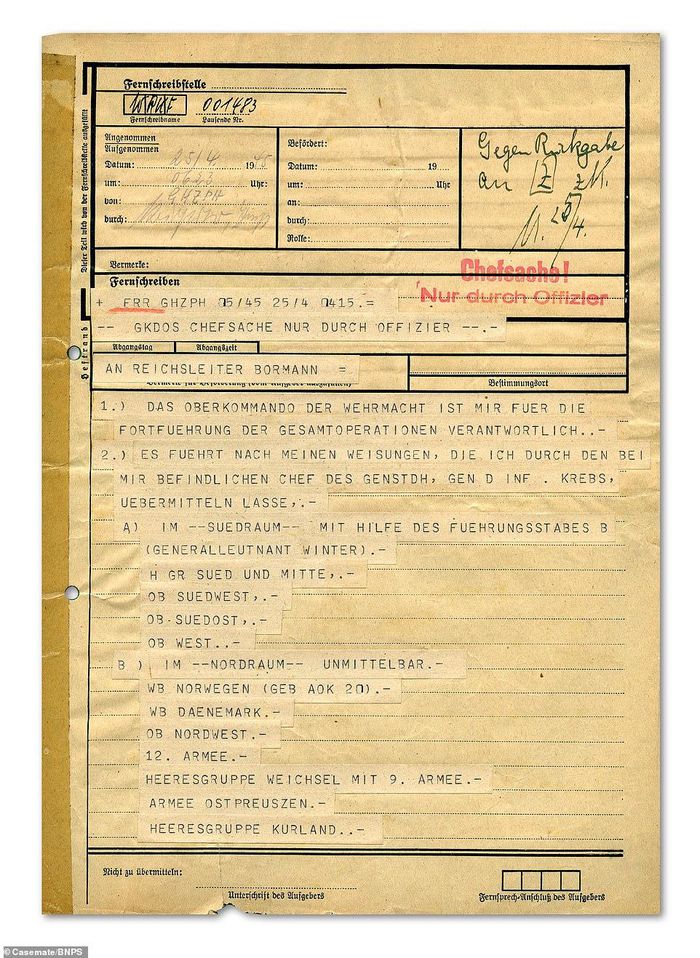 Fernschreibstelle
001483
Fernschreibname Laufende Nr.
Angenommen
Aufgenommen
Datum: 25/4. 19 45
um: 0623 Uhr:
von: GHZPH
durch:
Befördert:
Datum: 19
um: Uhr:
an:
durch:
Rolle:
Gegen Rückgabe
an Z z.K.
25/4.
Dieser Teil wird von der Fernschreibstelle ausgefüllt
Vermerke:
Fernschreiben
Chefsache!
Nur durch Offizier
+ FRR GHZPH 05/45 25/4 0415.=
-- GKDOS CHEFSACHE NUR DURCH OFFIZIER --.-
Abgangstag Abgangszeit
AN REICHSLEITER BORMANN =
Bestimmungsort
1.) DAS OBERKOMMANDO DER WEHRMACHT IST MIR FUER DIE
FORTFUEHRUNG DER GESAMTOPERATIONEN VERANTWORTLICH..-
2.) ES FUEHRT NACH MEINEN WEISUNGEN, DIE ICH DURCH DEN BEI
MIR BEFINDLICHEN CHEF DES GENSTDH, GEN D INF . KREBS,
UEBERMITTELN LASSE,.-
A) IM --SUEDRAUM-- MIT HILFE DES FUEHRUNGSSTABES B
(GENERALLEUTNANT WINTER).-
H GR SUED UND MITTE,.-
OB SUEDWEST,.-
OB-SUEDOST,.-
OB WEST..-
B ) IM --NORDRAUM-- UNMITTELBAR.-
WB NORWEGEN (GEB AOK 20).-
WB DAENEMARK.-
OB NORDWEST.-
12. ARMEE.-
HEERESGRUPPE WEICHSEL MIT 9. ARMEE.-
ARMEE OSTPREUSZEN.-
HEERESGRUPPE KURLAND..-
Nicht zu übermitteln:
Unterschrift des Aufgebers
Fernsprech-Anschluß des Aufgebers
© Casemate/BNPS